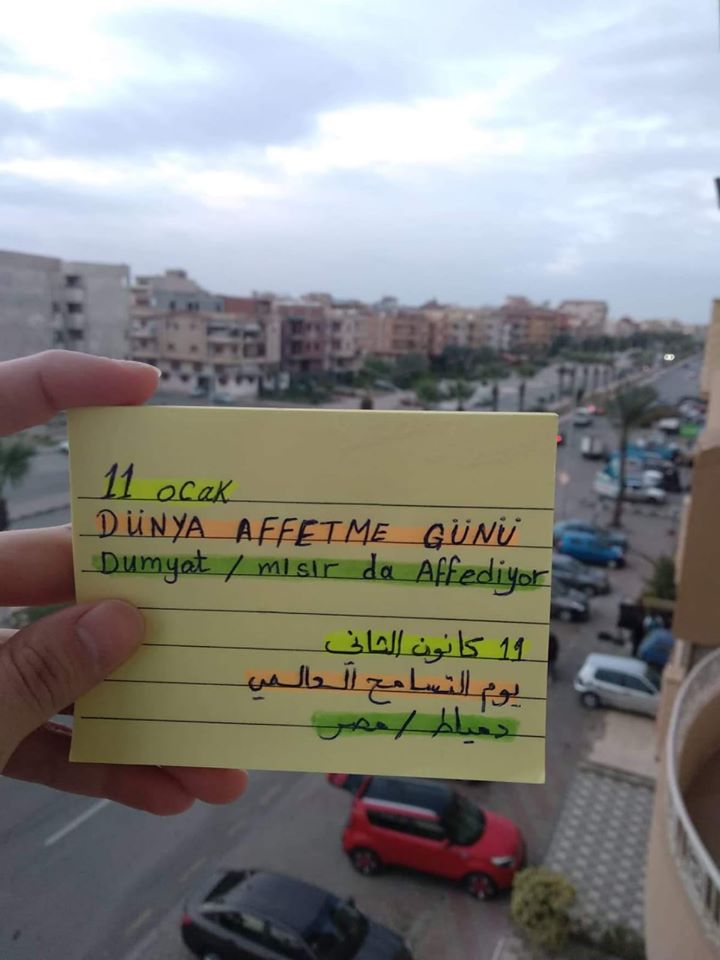 11 ocak
DÜNYA AFFETME GÜNÜ
Dumyat / mısır da Affediyor
11 كانون الثانى
يوم التسامح العالمي
دمياط / مصر